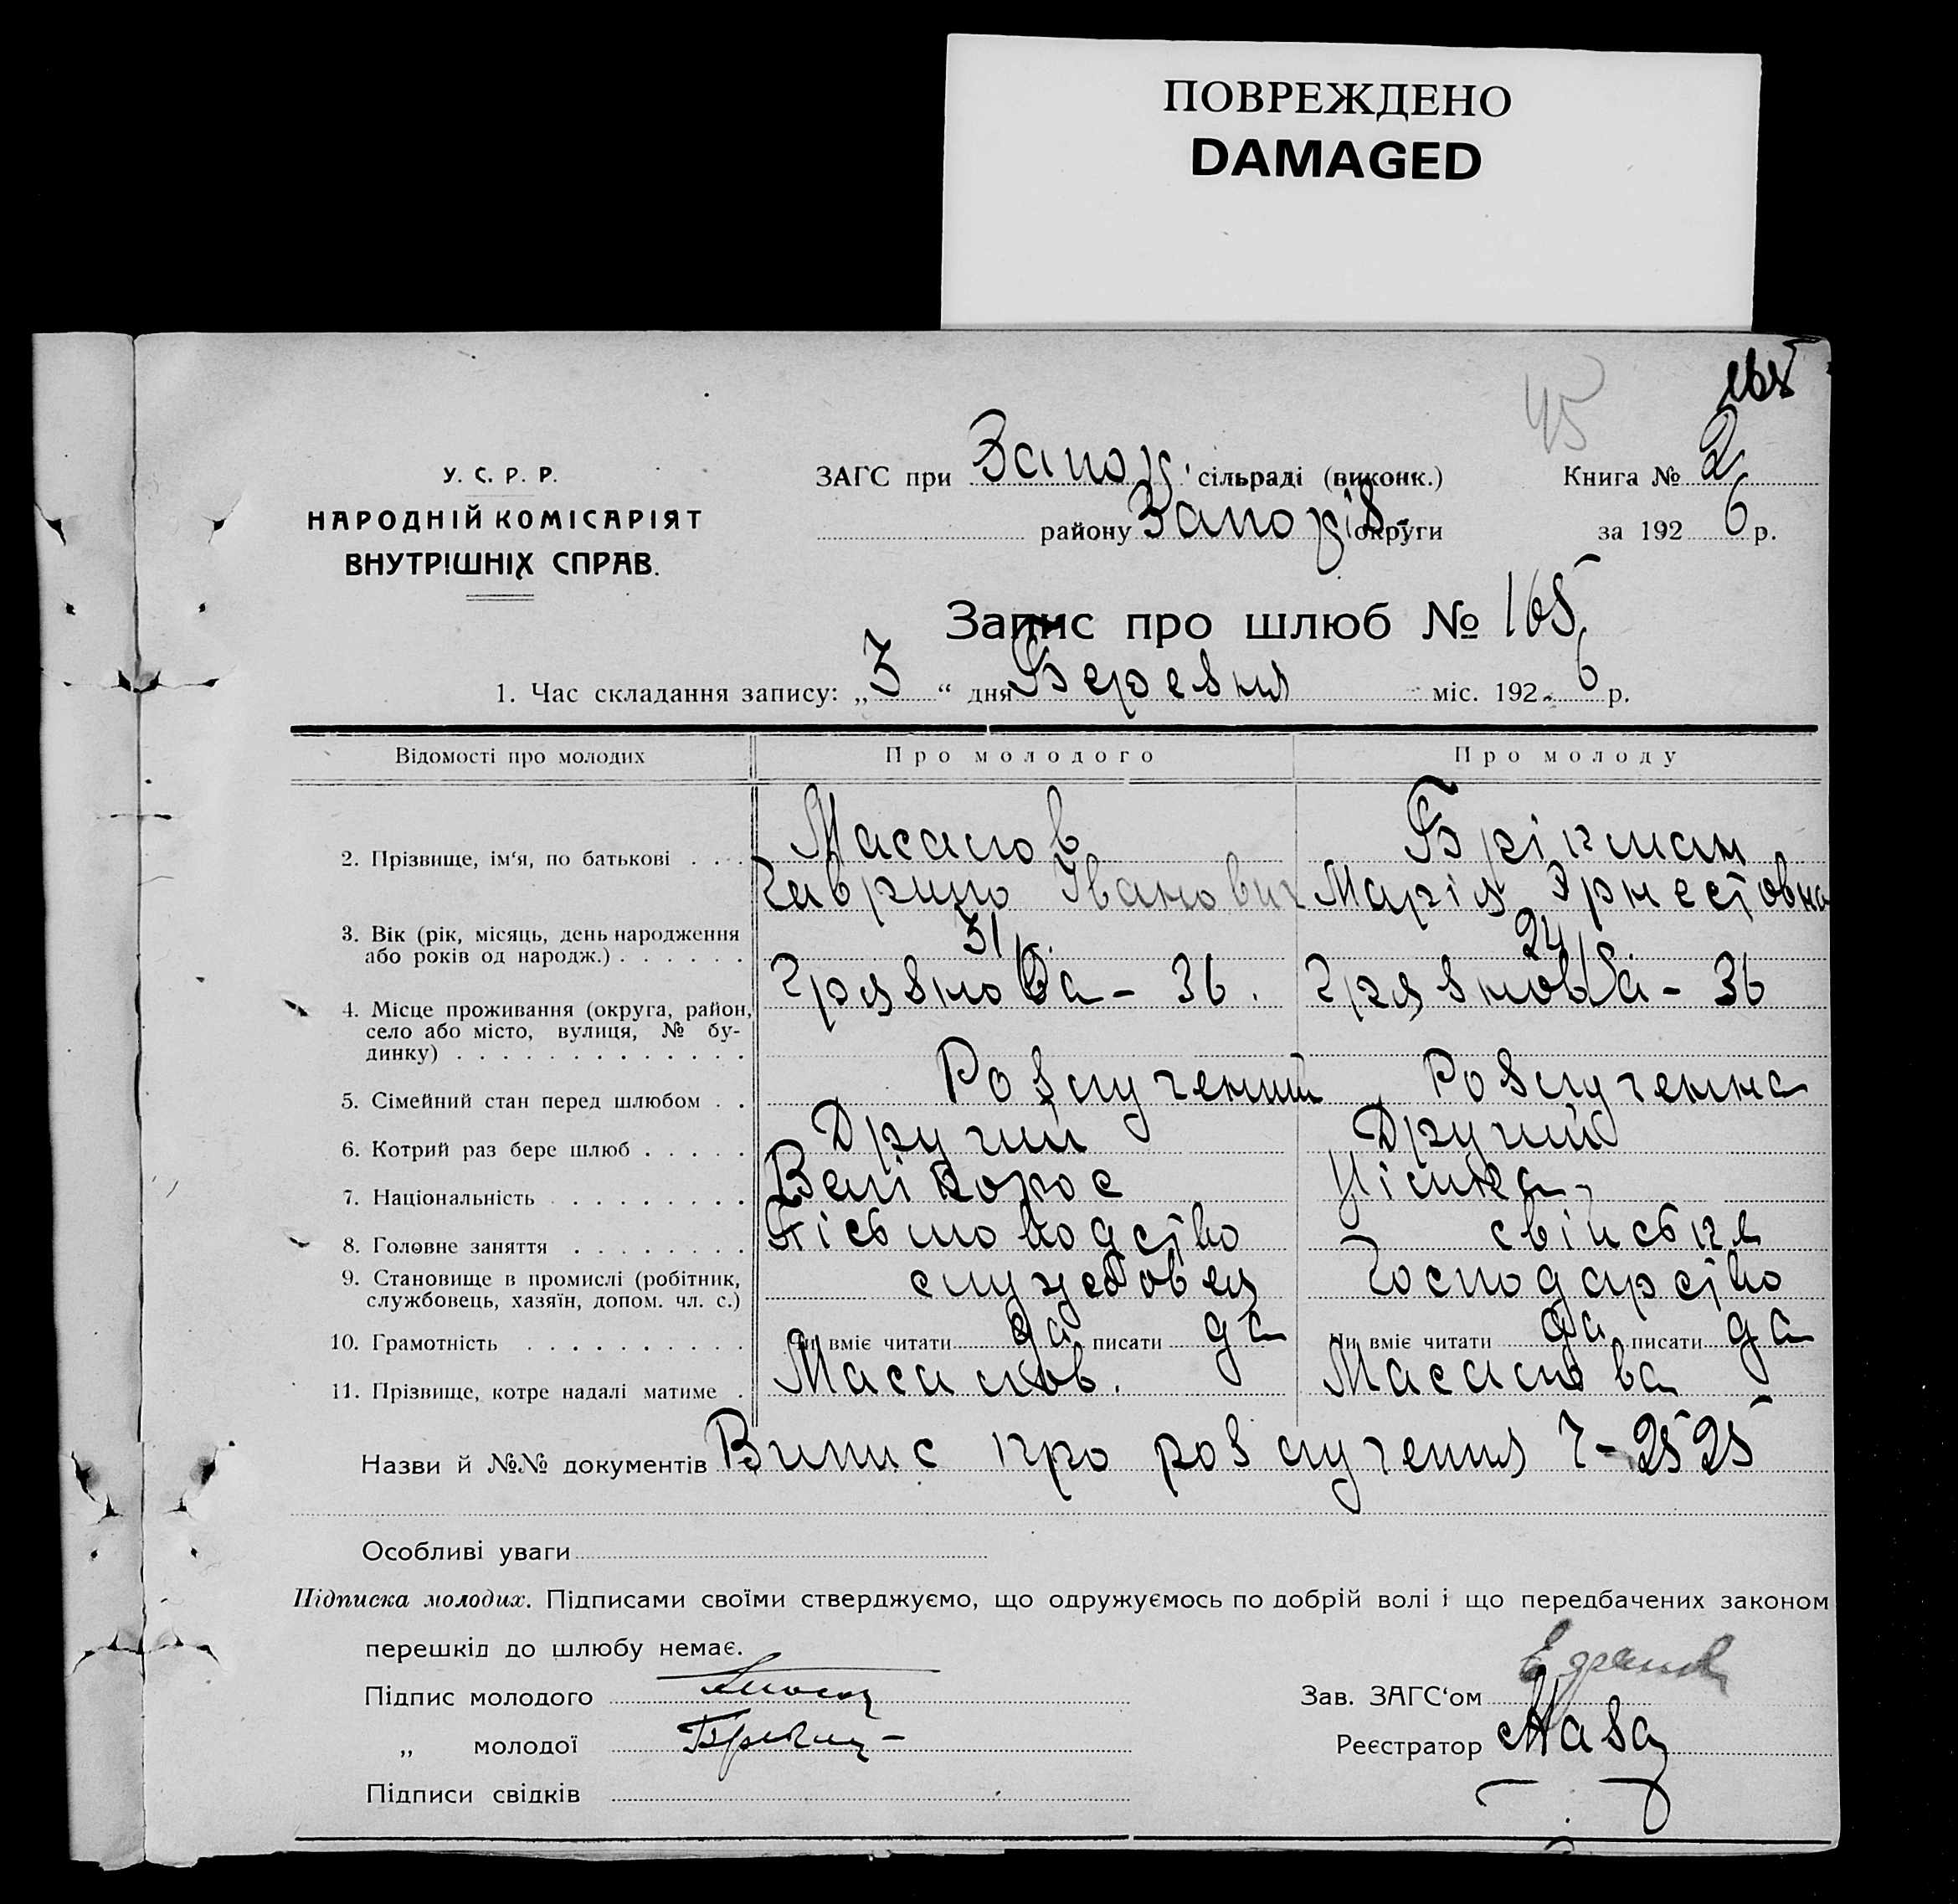 ПОВРЕЖДЕНО
DAMAGED
45
165
У. С. Р. Р.
НАРОДНІЙ КОМІСАРІЯТ
ВНУТРІШНІХ СПРАВ.
ЗАГС при Запор. сільраді (виконк.)
району Запоріз. округи
Книга № 2
за 1926 р.
Запис про шлюб № 165
1. Час складання запису: „3“ дня Березня міс. 1926 р.
Відомості про молодих Про молодого Про молоду
2. Прізвище, ім'я, по батькові . . . Масалов Брікман
Гаврило Іванович Марія Эрнестовна
3. Вік (рік, місяць, день народження 31 р. 24
або років од народж.) . . . . . .
Грязнова - 36. Грязнова - 36
4. Місце проживання (округа, район,
село або місто, вулиця, № бу-
динку) . . . . . . . . . . . . .
5. Сімейний стан перед шлюбом . . Розлучений Розлученна
6. Котрий раз бере шлюб . . . . . Другий Другий
7. Національність . . . . . . . . . Велікорос Німка
8. Головне заняття . . . . . . . . Пісьмоводство свійське
9. Становище в промислі (робітник, службовец Господарство
службовець, хазяїн, допом. чл. с.)
10. Грамотність . . . . . . . . . . Чи вміє читати да писати да Чи вміє читати да писати да
11. Прізвище, котре надалі матиме . Масалов. Масалова
Назви й №№ документів Випис про розлучення Ч-2525
Особливі уваги
Підписка молодих. Підписами своїми стверджуємо, що одружуємось по добрій волі і що передбачених законом
перешкід до шлюбу немає.
Підпис молодого
Зав. ЗАГС'ом
„ молодої
Реєстратор
Підписи свідків